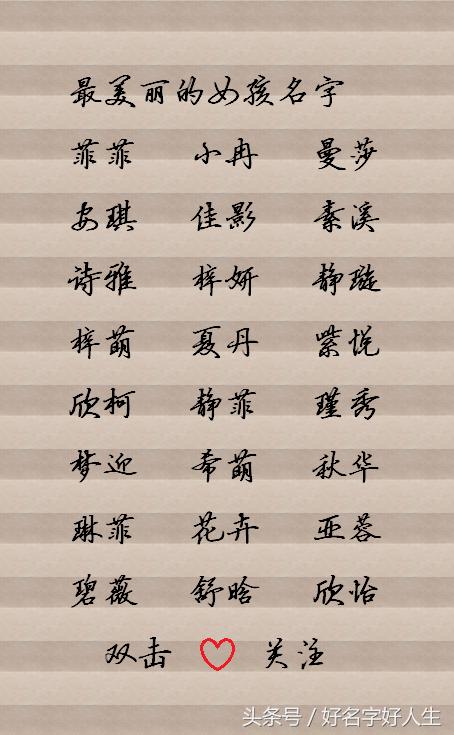 最美丽的女孩名字
菲菲 小冉 曼莎
安琪 佳影 素溪
诗雅 梓妍 静璇
梓萌 夏丹 紫悦
欣柯 静菲 瑾秀
梦迎 希萌 秋华
琳菲 花卉 亚蓉
碧薇 舒晗 欣怡
双击 关注
头条号 / 好名字好人生